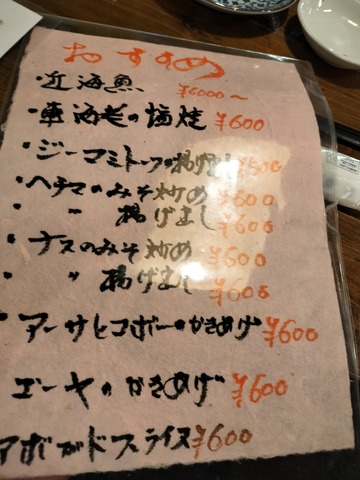 おすすめ
・近海魚 ¥6000〜
・車海老の塩焼 ¥600
・ジーマミトーフの揚げ出し ¥600
・ヘチマのみそ炒め ¥600
・〃 揚げ出し ¥600
・ナスのみそ炒め ¥600
・〃 揚げ出し ¥600
・アーサとゴボーのかきあげ ¥600
・ゴーヤのかきあげ ¥600
アボガドスライス ¥600